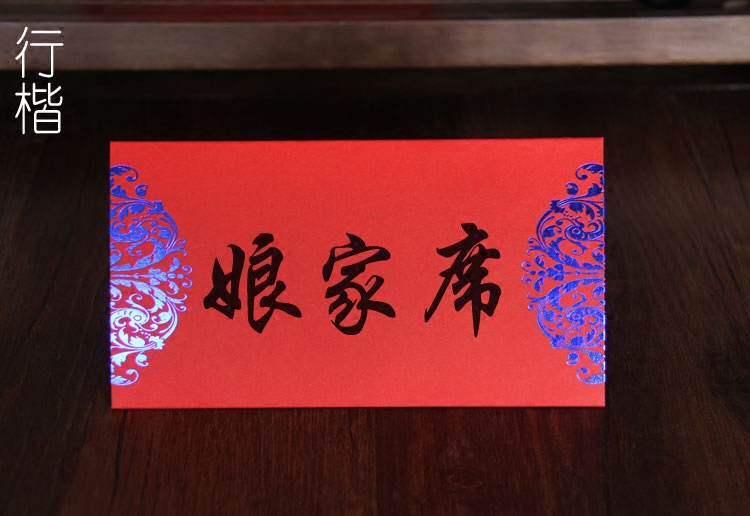 行楷
娘家席